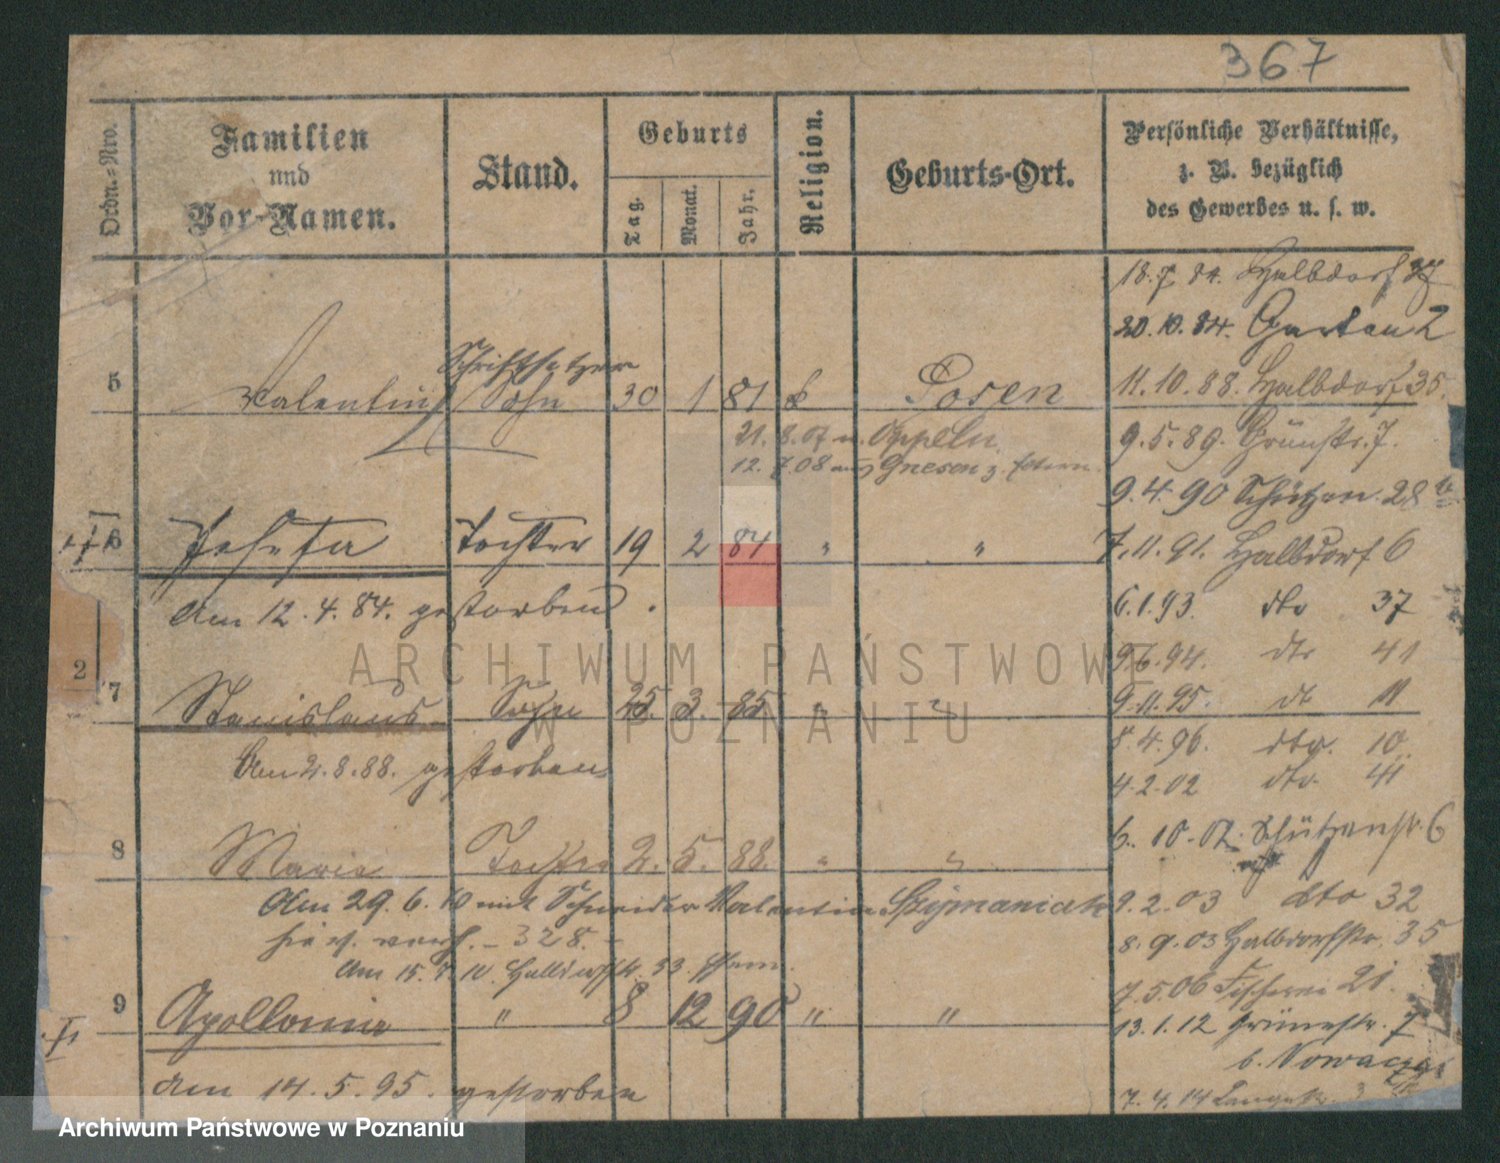 367
Ordn.-Nro.
Familien
und
Vor-Namen.
Stand.
Geburts
Tag.
Monat.
Jahr.
Religion.
Geburts-Ort.
Persönliche Verhältnisse,
z. B. bezüglich
des Gewerbes u. s. w.
18. 7 84. Halbdorf
20. 10. 84. Garten 2
Schriftsetzer
5 Valentin Sohn 30 1 81 Posen
11. 10. 88. Halbdorf 35.
21. 8. 07 n. Oppeln
9. 5. 89. Grünstr. 7.
12. 7 08 aus Gnesen z.
9. 4. 90 Schützen 28
6 Josefa Tochter 19 2 84 " "
7. 11. 91. Halbdorf 6
Am 12. 4. 84. gestorben.
6. 1. 93. dto 37
9. 6. 94. dto 41
2
7 Stanislaus Sohn 25. 3. 85 " "
9. 11. 95. dto 11
8. 4. 96. dto. 10.
Am 2. 8. 88. gestorben
4. 2. 02 dto. 41
6. 10. 02. Schützenstr. 6
8 Maria Tochter 2. 5. 88. " "
Am 29. 6. 10 mit Schneider Valentin Szymaniak
9. 2. 03 dto 32
hier verh. – 328. –
8. 9. 03 Halbdorfstr. 35
Am 15. 7. 10. Halbdorfstr. 33
7. 5. 06 Fischerei 21.
9 Apollonia " 8 12 90 " "
13. 1. 12 Grünestr. 7
b. Nowaczyk
Am 14. 5. 95. gestorben
7. 4. 14 Langestr. 3
ARCHIWUM PAŃSTWOWE
W POZNANIU
Archiwum Państwowe w Poznaniu